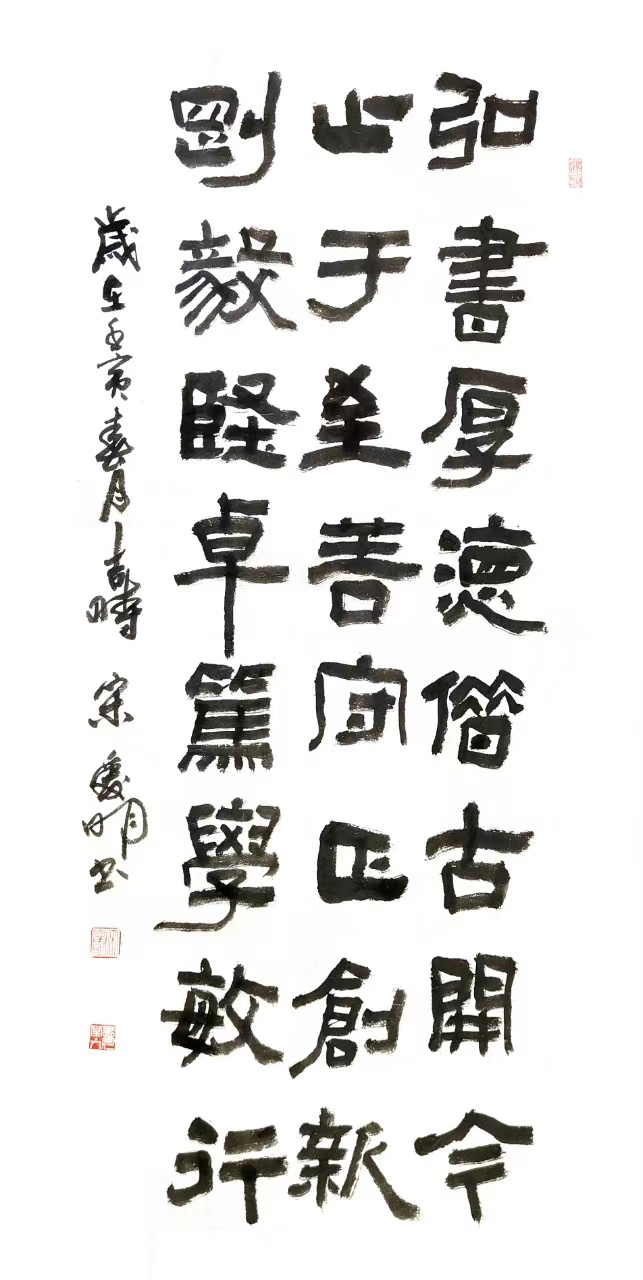 弘書厚德借古開今
止于至善守正創新
剛毅堅卓篤學敏行
歲在壬寅春月吉時 宋慶明書